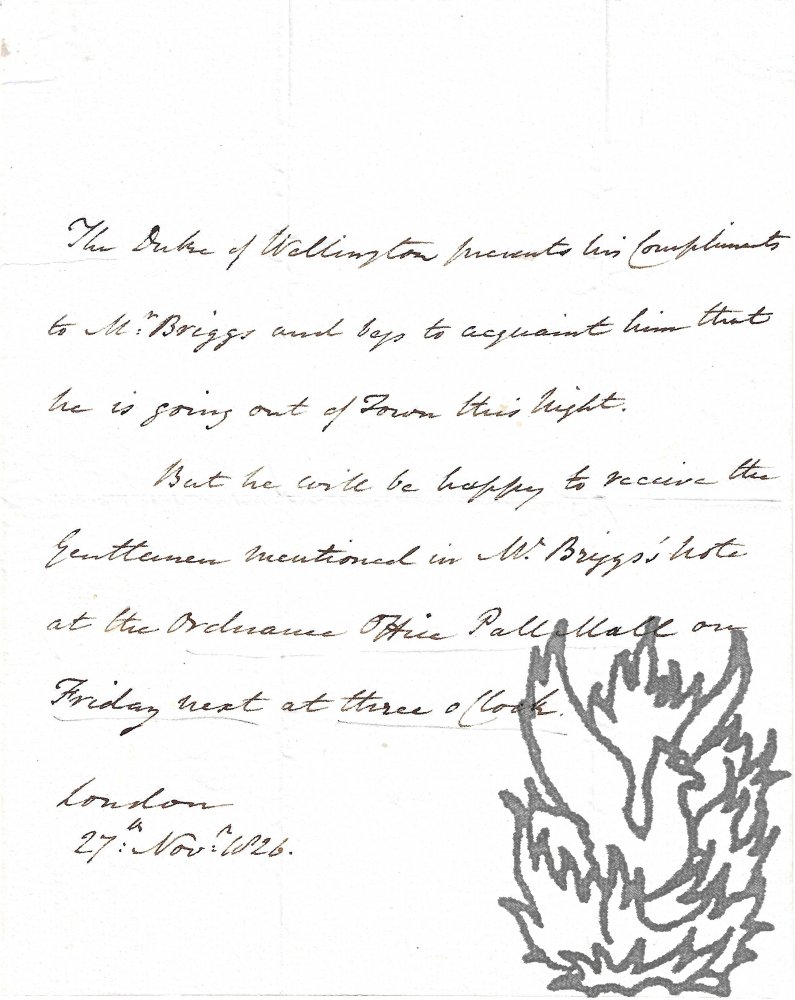 The Duke of Wellington presents his Compliments
to Mr. Briggs and begs to acquaint him that
he is going out of Town this Night.
But he will be happy to receive the
Gentlemen mentioned in Mr. Briggs's Note
at the Ordnance Office Pall Mall on
Friday next at three o'Clock.
London
27th. Novr. 1826.